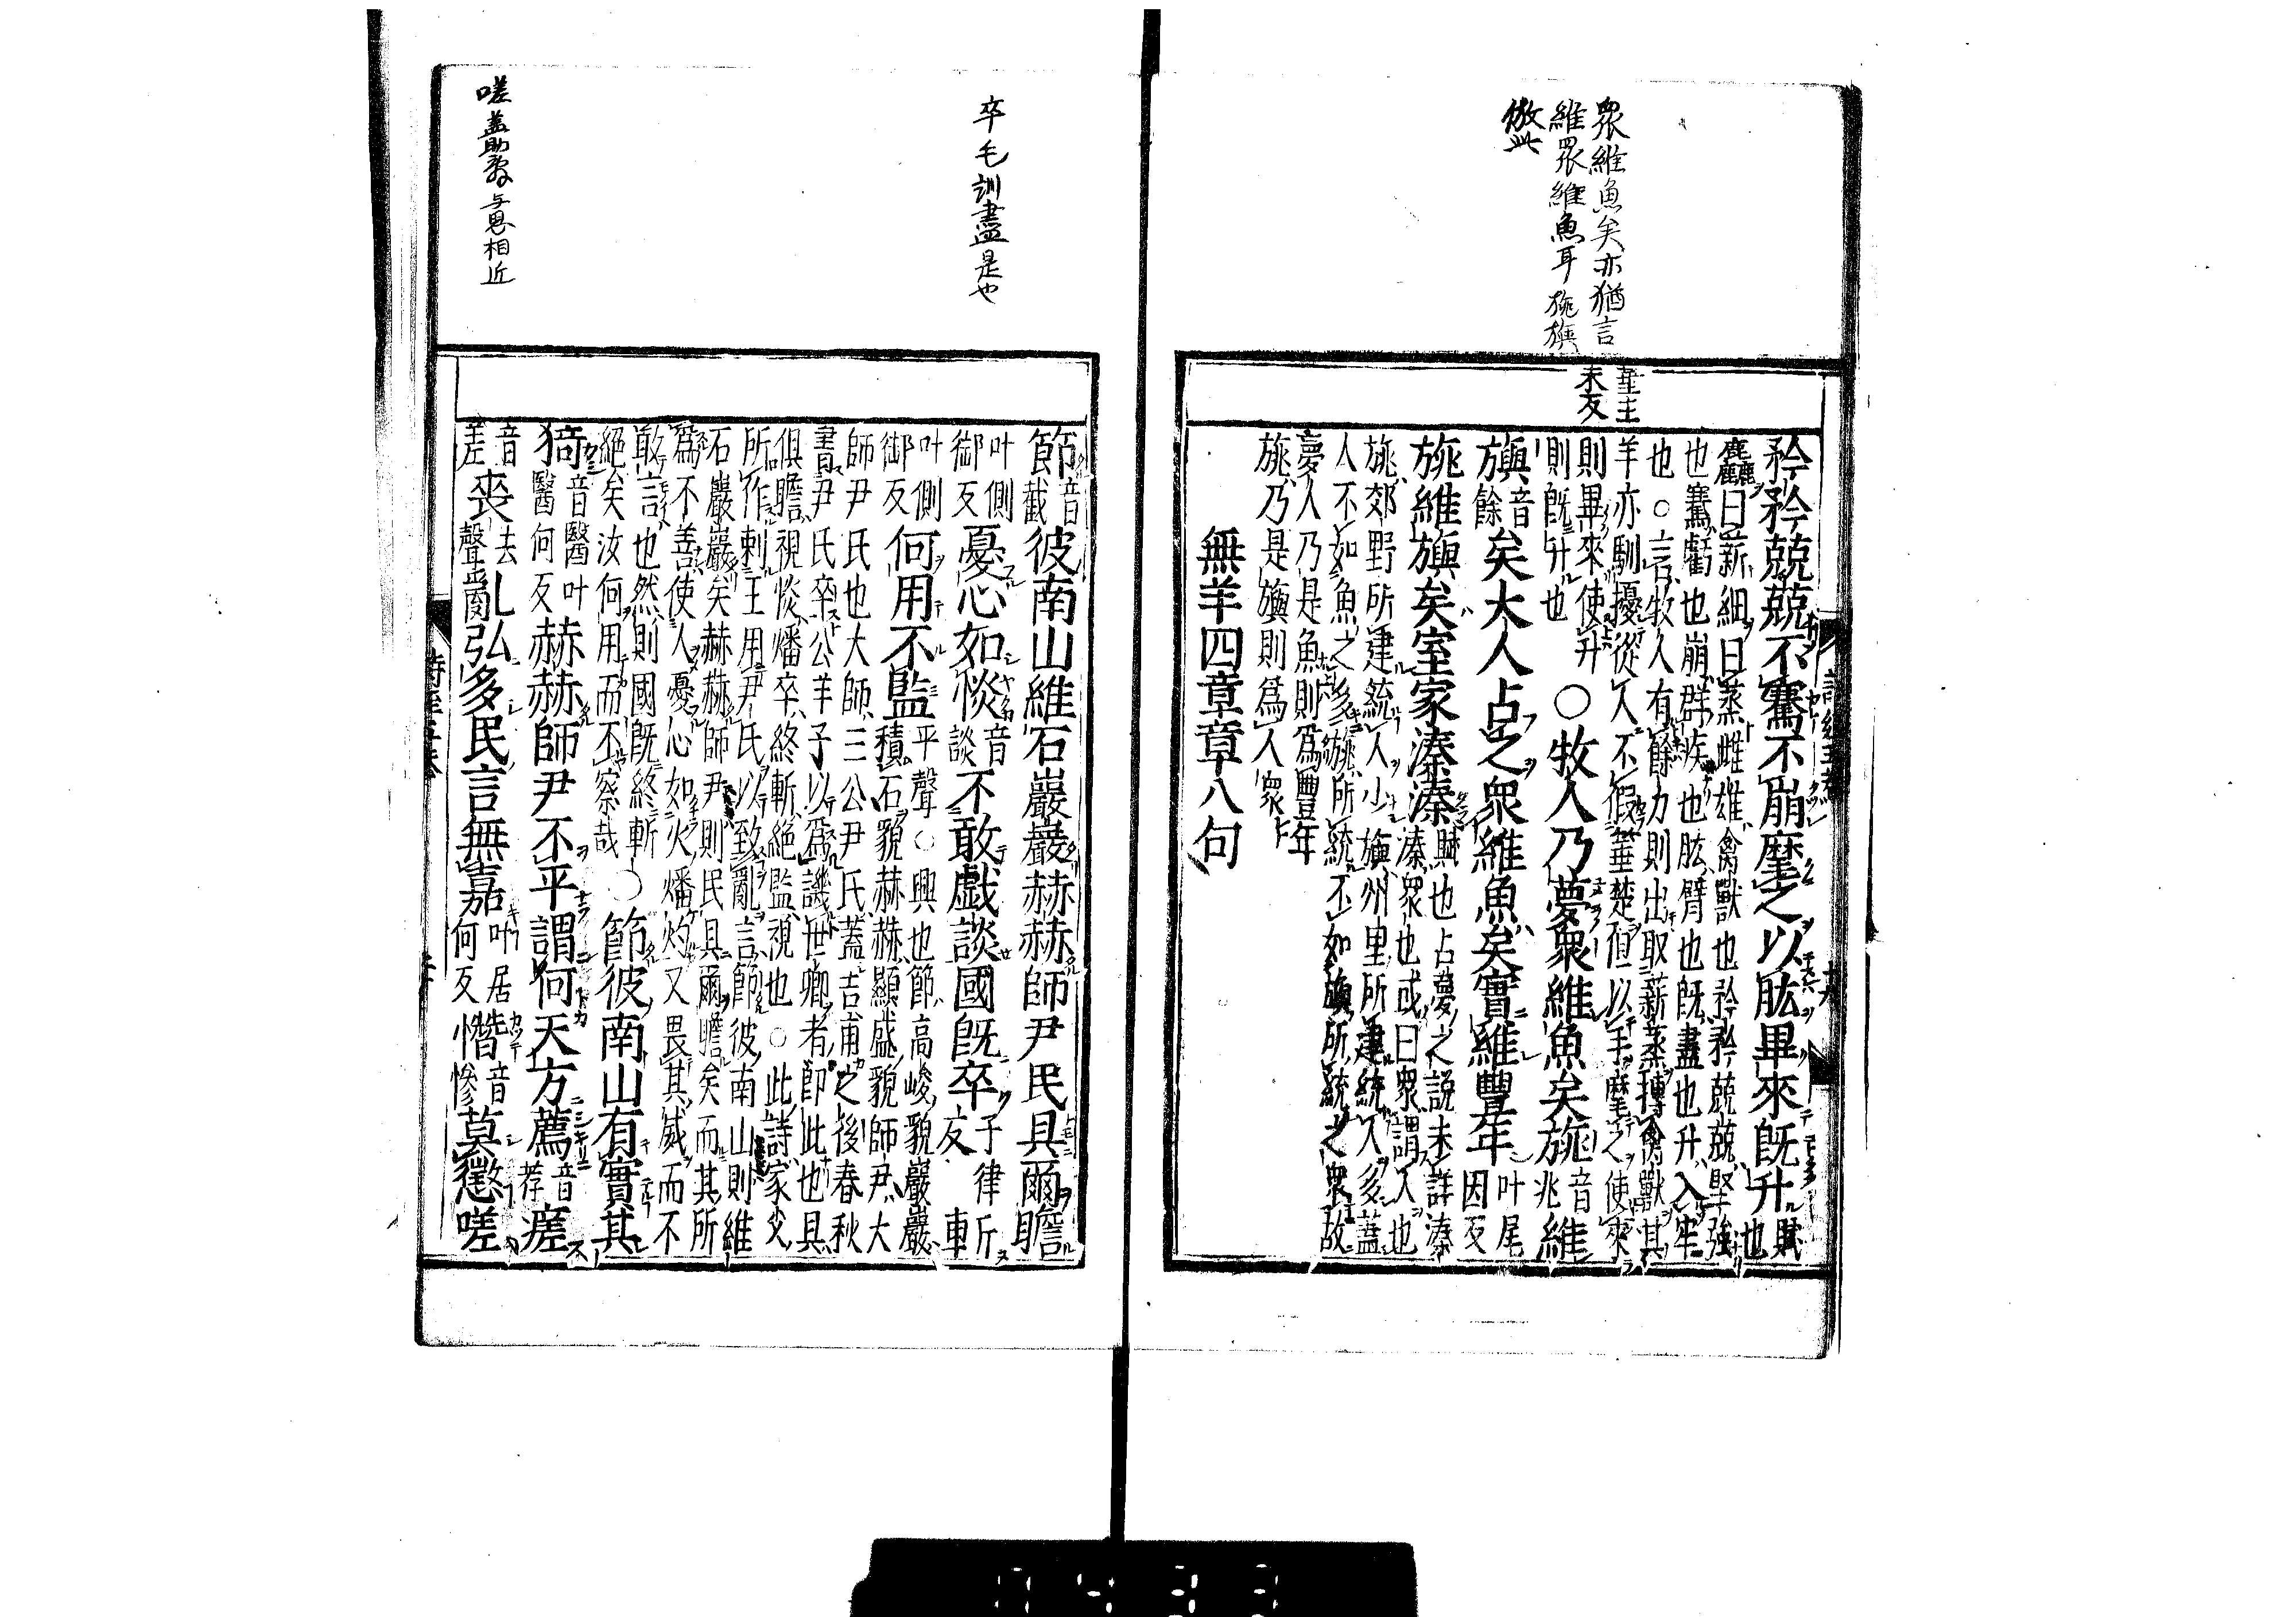 衆維魚矣亦猶言
維衆維魚耳旐旟
倣此
箠主
未反
矜矜兢兢不騫不崩麾之以肱畢來既升賦也
麤曰薪細曰蒸雌雄禽獸也矜矜兢兢堅強
也騫虧也崩群疾也肱臂也既盡也升入牢
也○言牧人有餘力則出取薪蒸搏禽獸其
羊亦馴擾從人不假箠楚但以手麾之使來
則畢來使升
則既升也○牧人乃夢衆維魚矣旐音兆維
旟音餘矣大人占之衆維魚矣實維豐年叶尾因反
旐維旟矣室家溱溱賦也占夢之説未詳溱
溱衆也或曰衆謂人也
旐郊野所建統人少旟州里所建統人多蓋
人不如魚之多旐所統不如旟所統之衆故
夢人乃是魚則爲豐年
旐乃是旟則爲人衆
無羊四章章八句
卒毛訓盡是也
嗟蓋助聲与思相近
節音截彼南山維石巖巖赫赫師尹民具爾瞻
叶側御反憂心如惔音談不敢戲談國既卒子律反斬
叶側御反何用不監平聲○興也節高峻貌巖巖
積石貌赫赫顯盛貌師尹大
師尹氏也大師三公尹氏蓋吉甫之後春秋
書尹氏卒公羊子以爲譏世卿者即此也具
俱瞻視惔燔卒終斬絕監視也○此詩家父
所作刺王用尹氏以致亂言節彼南山則維
石巖巖矣赫赫師尹則民具爾瞻矣而其所
爲不善使人憂心如火燔灼又畏其威而不
敢言也然則國既終斬
絕矣汝何用而不察哉○節彼南山有實其
猗音醫叶醫何反赫赫師尹不平謂何天方薦音荐瘥
音差喪去聲亂弘多民言無嘉叶居何反憯音慘莫懲嗟